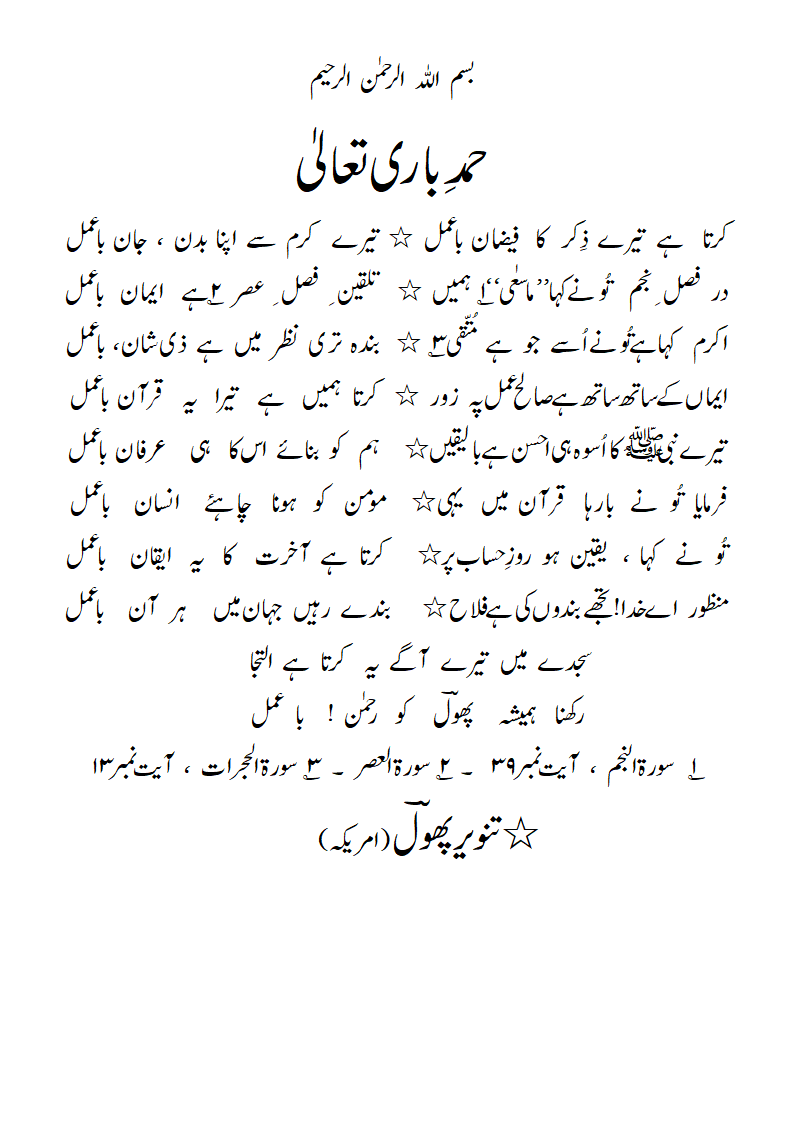 بسم اللہ الرحمٰن الرحیم
حمدِ باری تعالیٰ
کرتا ہے تیرے ذِکر کا فیضان باعمل ☆ تیرے کرم سے اپنا بدن ، جان باعمل
در فصلِ نجم تُو نے کہا ’’ماسَعٰی‘‘۱؎ ہمیں ☆ تلقینِ فصلِ عصر ۲؎ ہے ایمان باعمل
اکرم کہا ہے تُو نے اُسے جو ہے مُتّقی۳؎ ☆ بندہ تری نظر میں ہے ذی شان، باعمل
ایماں کے ساتھ ساتھ ہے صالح عمل پہ زور ☆ کرتا ہمیں ہے تیرا یہ قرآن باعمل
تیرے نبیﷺ کا اُسوہ ہی احسن ہے بالیقیں☆ ہم کو بنائے اس کا ہی عرفان باعمل
فرمایا تُو نے بارہا قرآن میں یہی☆ مومن کو ہونا چاہئے انسان باعمل
تُو نے کہا ، یقین ہو روزِحساب پر☆ کرتا ہے آخرت کا یہ ایقان باعمل
منظور اے خدا! تجھے بندوں کی ہے فلاح ☆ بندے رہیں جہان میں ہر آن باعمل
سجدے میں تیرے آگے یہ کرتا ہے التجا
رکھنا ہمیشہ پھولؔ کو رحمٰن ! با عمل
۱؎ سورۃ النجم ، آیت نمبر ۳۹ ۔ ۲؎ سورۃ العصر ۔ ۳؎ سورۃ الحجرات ، آیت نمبر ۱۳
☆ تنویر پھولؔ (امریکہ)